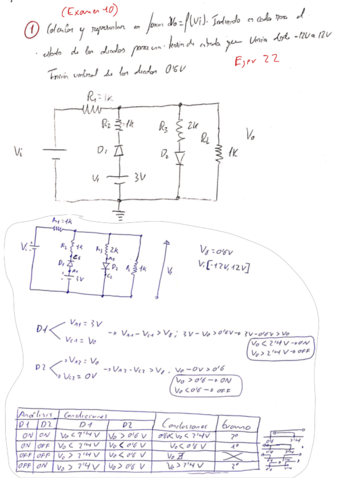 (Examen 10)
① Calcular y representar en forma Vo = f(Vi). Indicando en cada tramo el
estado de los diodos para una tensión de entrada que varía desde -12V a 12V
Tensión umbral de los diodos 0'6V
Ejer 22
R1=1k
R2 1k
R3 2k
RL 1k
D1
D2
Vi
V1 3V
Vo
R1=1k
Vγ=0'6V
Vi[-12V,12V]
D1 VA1 = 3V
VC1 = Vo
→ VA1-VC1 > Vγ; 3V-Vo>0'6V → 3V-0'6V>Vo
Vo<2'4V → ON
Vo>2'4V → OFF
D2 → VA2=Vo
→ VC2=0V
→ VA2-VC2>Vγ; Vo-0V>0'6
Vo>0'6 → ON
Vo<0'6 → OFF
Análisis Condiciones
D1 D2 D1 D2 Condiciones Tramo
ON ON Vo<2'4V Vo>0'6V 0'6<Vo<2'4V 2º
ON OFF Vo<2'4V Vo<0'6V Vo<0'6V 1º
OFF OFF Vo>2'4V Vo<0'6V
OFF ON Vo>2'4V Vo>0'6V Vo>2'4V